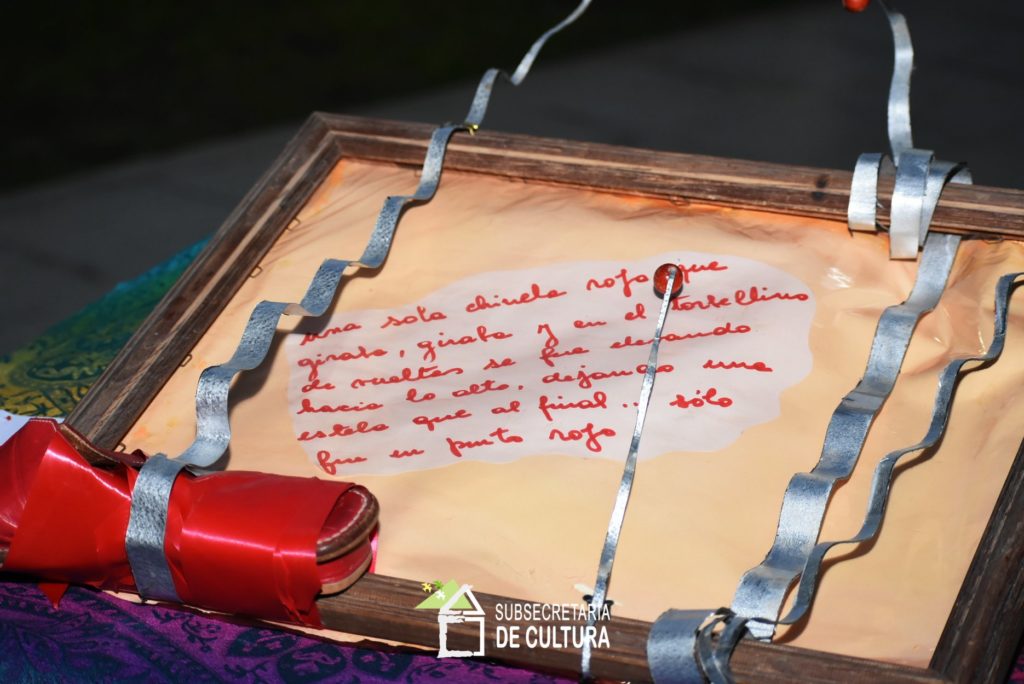 una sola chinela rojo que
giraba, giraba y en el torbellino
de vueltas se fue elevando
hacia lo alto, dejando una
estela que al final... sólo
fue un punto rojo
SUBSECRETARÍA
DE CULTURA